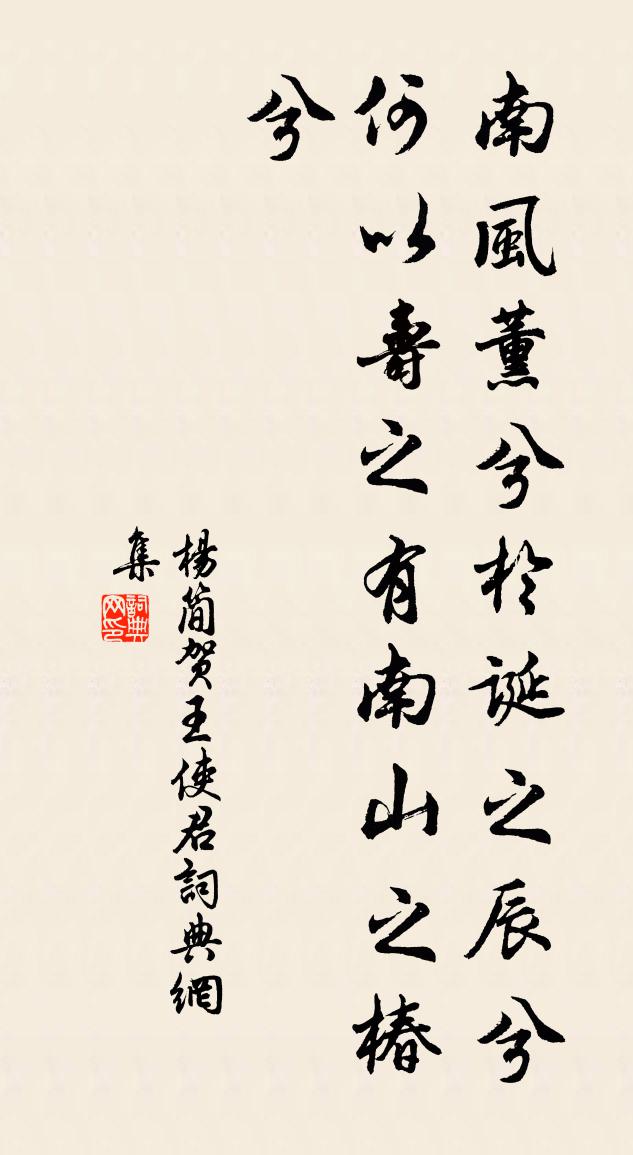 南風薰兮於誕之辰兮
何以壽之有南山之椿
兮
楊簡賀王使君詞典網
集
詞典
网印